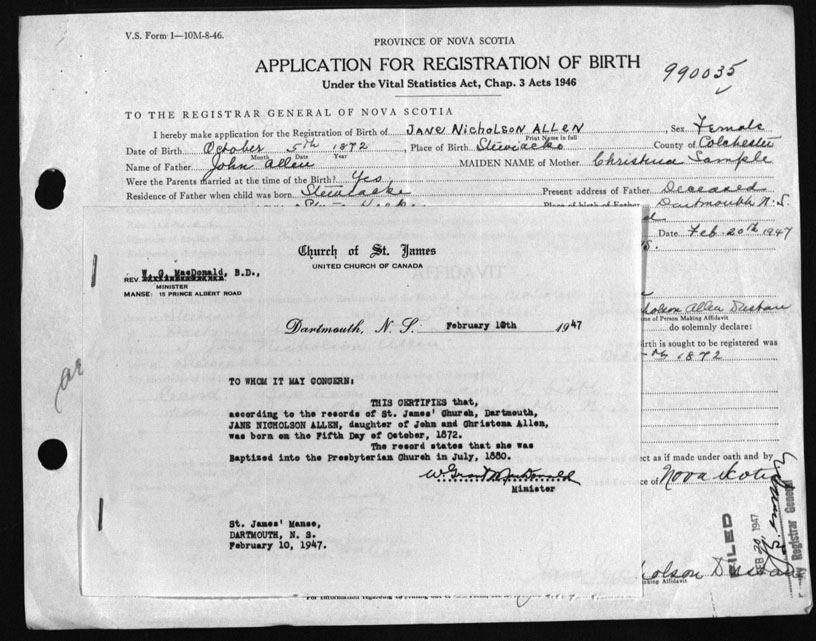 V.S. Form 1—10M-8-46.
PROVINCE OF NOVA SCOTIA
APPLICATION FOR REGISTRATION OF BIRTH
Under the Vital Statistics Act, Chap. 3 Acts 1946
990035
TO THE REGISTRAR GENERAL OF NOVA SCOTIA
I hereby make application for the Registration of Birth of JANE NICHOLSON ALLEN, Sex Female
Print Name in full
Date of Birth October 5th 1872, Place of Birth Stewiacke County of Colchester
Month Date Year
Name of Father John Allen MAIDEN NAME of Mother Christina Sample
Were the Parents married at the time of the Birth? Yes
Residence of Father when child was born Stewiacke Present address of Father Deceased
Place of birth of Father Dartmouth N.S.
Date Feb. 20th 1947
Church of St. James
UNITED CHURCH OF CANADA
REV. W. G. MacDonald, B.D.,
MINISTER
MANSE: 15 PRINCE ALBERT ROAD
Dartmouth, N. S. February 10th 1947
TO WHOM IT MAY CONCERN:
THIS CERTIFIES that,
according to the records of St. James' Church, Dartmouth,
JANE NICHOLSON ALLEN, daughter of John and Christena Allen,
was born on the Fifth Day of October, 1872.
The record states that she was
Baptized into the Presbyterian Church in July, 1880.
W. Grant MacDonald
Minister
St. James' Manse,
DARTMOUTH, N. S.
February 10, 1947.
holson Allen Dustan
me of Person Making Affidavit
do solemnly declare:
irth is sought to be registered was
5th 1872
ect as if made under oath and by
ce of Nova Scotia
FILED
FEB 20 1947
Registrar General
holson Dustan
aking Affidavit